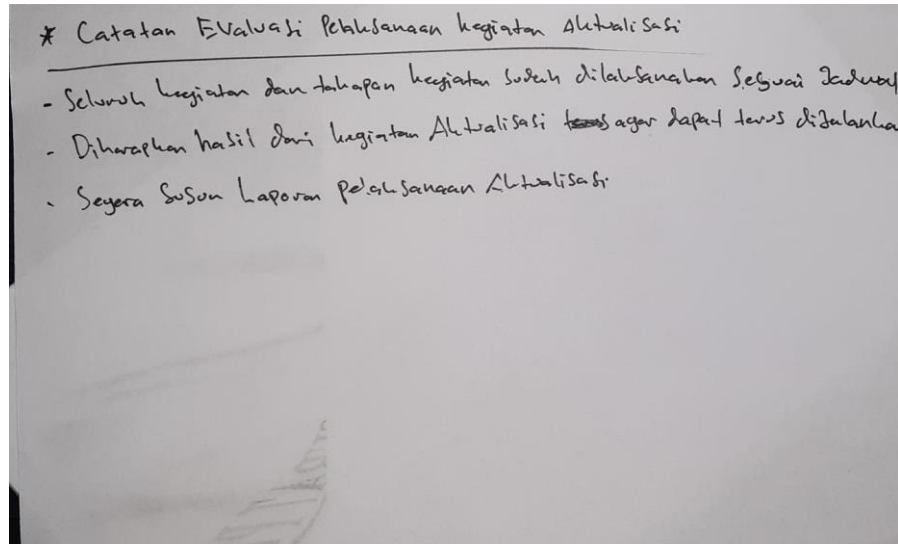 * Catatan Evaluasi Pelaksanaan kegiatan Aktualisasi
- Seluruh kegiatan dan tahapan kegiatan sudah dilaksanakan Sesuai Jadwal
- Diharapkan hasil dari kegiatan Aktualisasi agar dapat terus diJalanka
- Segera Susun Laporan pelaksanaan Aktualisasi